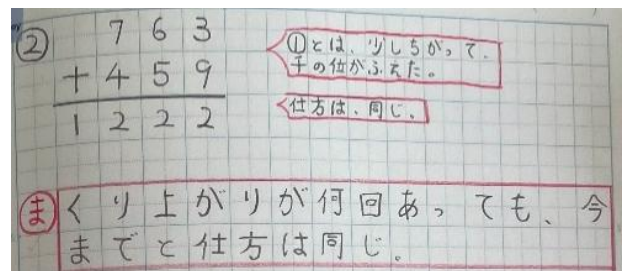 ② 763
+459
1222
①とは、少しちがって、
千の位がふえた。
仕方は、同じ。
ま くり上がりが何回あっても、今
までと仕方は同じ。